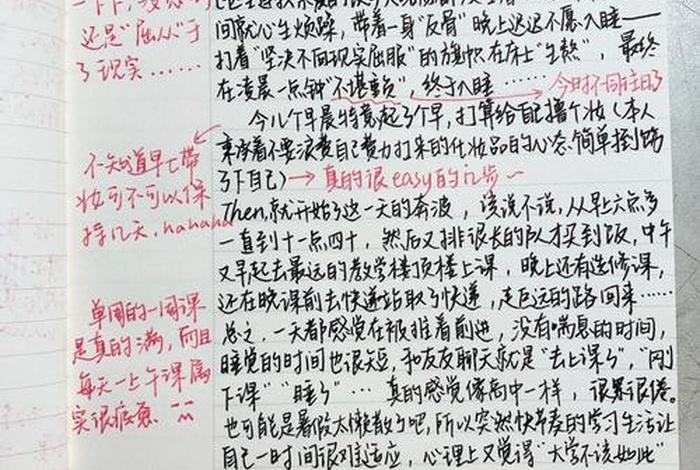 一下下，
还是"屈从"于
了现实……
间就心生烦躁，带着一身"反骨"晚上迟迟不愿入睡——
打着"坚决不向现实屈服"的旗帜在床上"生熬"，最终
在凌晨一点钟"不堪重负"，终于入睡……→今时不同往日了
今儿个早晨特意起了个早，打算给自己撸个妆（本人
秉持着不要浪费自己费力打来的化妆品的心态简单捯饬
了下自己）→真的很easy的几步～
Then，就开始了这一天的奔波，该说不说，从早上六点多
一直到十一点四十，然后又排很长的队才买到饭，中午
又早起去最远的教学楼顶楼上课，晚上还有选修课，
还在晚课前去快递站取了快递，走巨远的路回来……
总之，一天都感觉在被推着前进，没有喘息的时间，
睡觉的时间也很短，和友友聊天就是"去上课了"，"刚
下课""睡了"…真的感觉像高中一样，很累很倦。
也可能是暑假太懒散了吧，所以突然快节奏的学习生活让
自己一时间很难适应，心理上又觉得"大学不该如此"
不知道早七带
妆可不可以保
持几天，hahaha
单周的一周课
是真的满，而且
每天一上午课属
实很疲惫